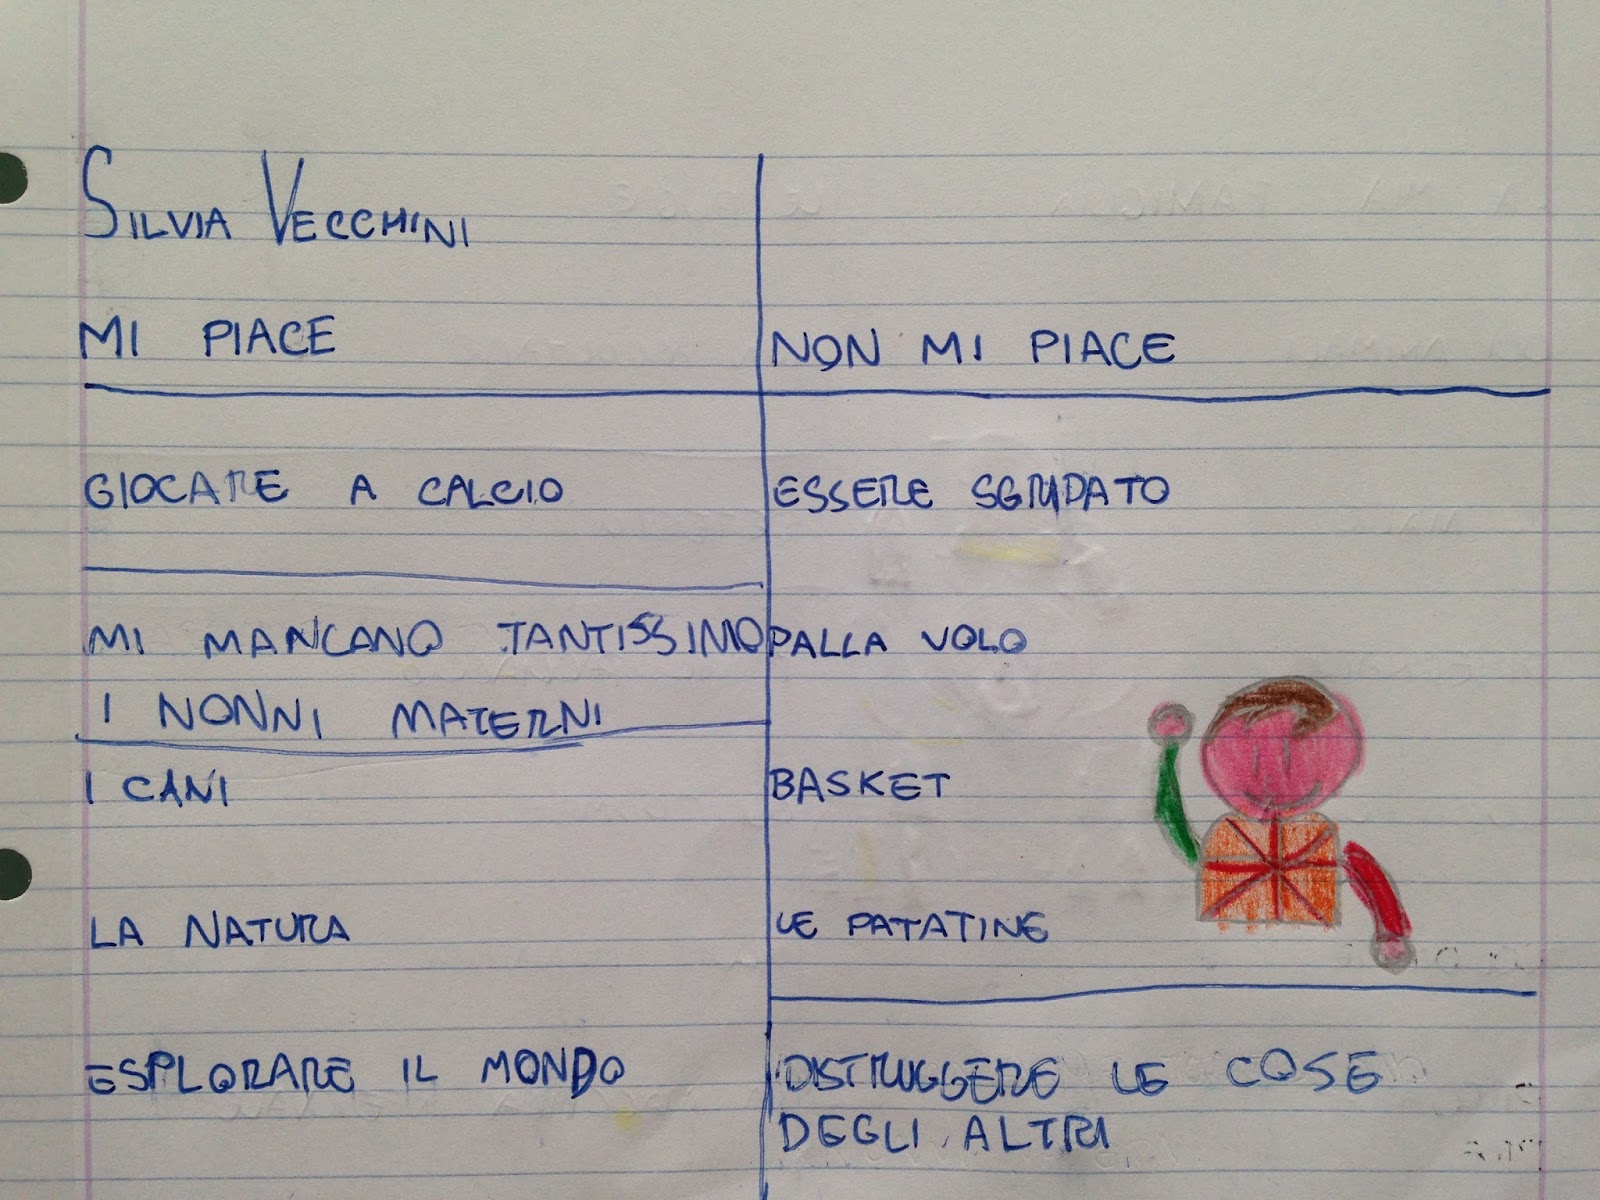 SILVIA VECCHINI
MI PIACE
NON MI PIACE
GIOCARE A CALCIO
ESSERE SGRIDATO
MI MANCANO TANTISSIMO
I NONNI MATERNI
PALLA VOLO
I CANI
BASKET
LA NATURA
LE PATATINE
ESPLORARE IL MONDO
DISTRUGGERE LE COSE
DEGLI ALTRI